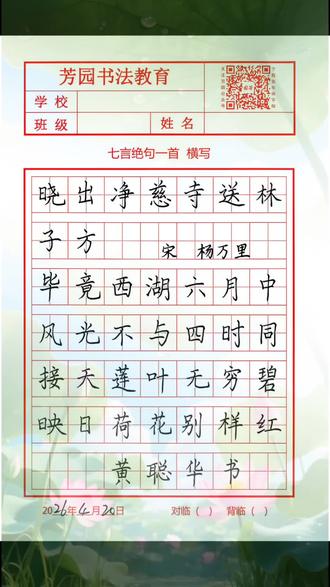 芳园书法教育
学校
班级 姓名
七言绝句一首 横写
晓出净慈寺送林
子方 宋 杨万里
毕竟西湖六月中
风光不与四时同
接天莲叶无穷碧
映日荷花别样红
黄聪华书
2026年4月20日 对临( ) 背临( )